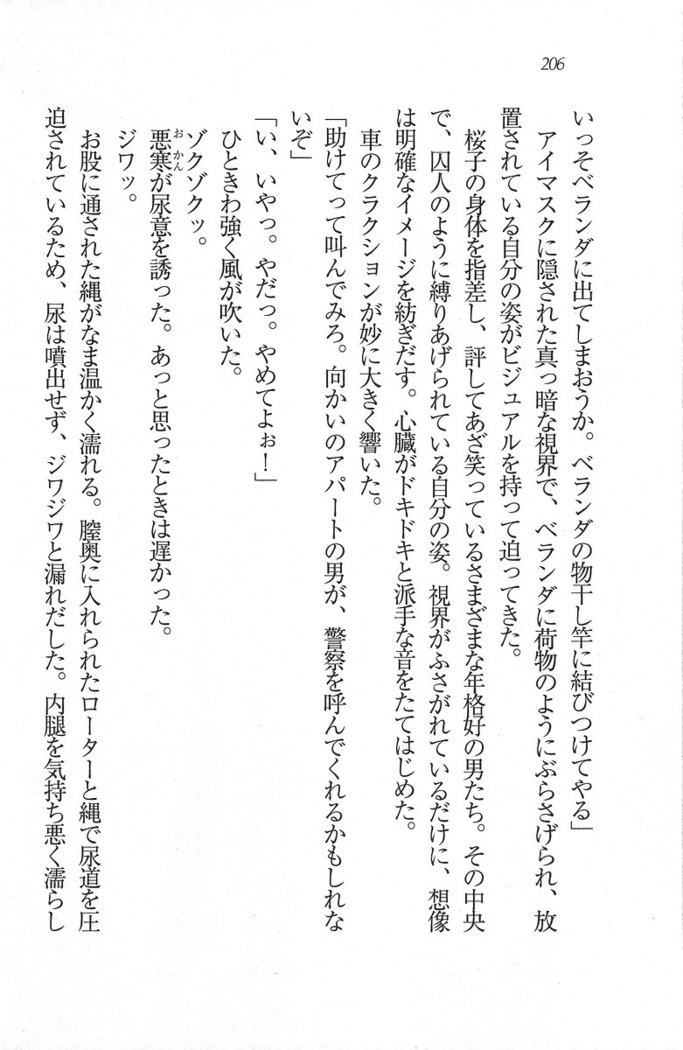 206
いっそベランダに出てしまおうか。ベランダの物干し竿に結びつけてやる」
アイマスクに隠された真っ暗な視界で、ベランダに荷物のようにぶらさげられ、放
置されている自分の姿がビジュアルを持って迫ってきた。
桜子の身体を指差し、評してあざ笑っているさまざまな年格好の男たち。その中央
で、囚人のように縛りあげられている自分の姿。視界がふさがれているだけに、想像
は明確なイメージを紡ぎだす。心臓がドキドキと派手な音をたてはじめた。
車のクラクションが妙に大きく響いた。
「助けてって叫んでみろ。向かいのアパートの男が、警察を呼んでくれるかもしれな
いぞ」
「い、いやっ。やだっ。やめてよぉ！」
ひときわ強く風が吹いた。
ゾクゾクッ。
悪寒が尿意を誘った。あっと思ったときは遅かった。
おかん
ジワッ。
お股に通された縄がなま温かく濡れる。膣奥に入れられたローターと縄で尿道を圧
迫されているため、尿は噴出せず、ジワジワと漏れだした。内腿を気持ち悪く濡らし